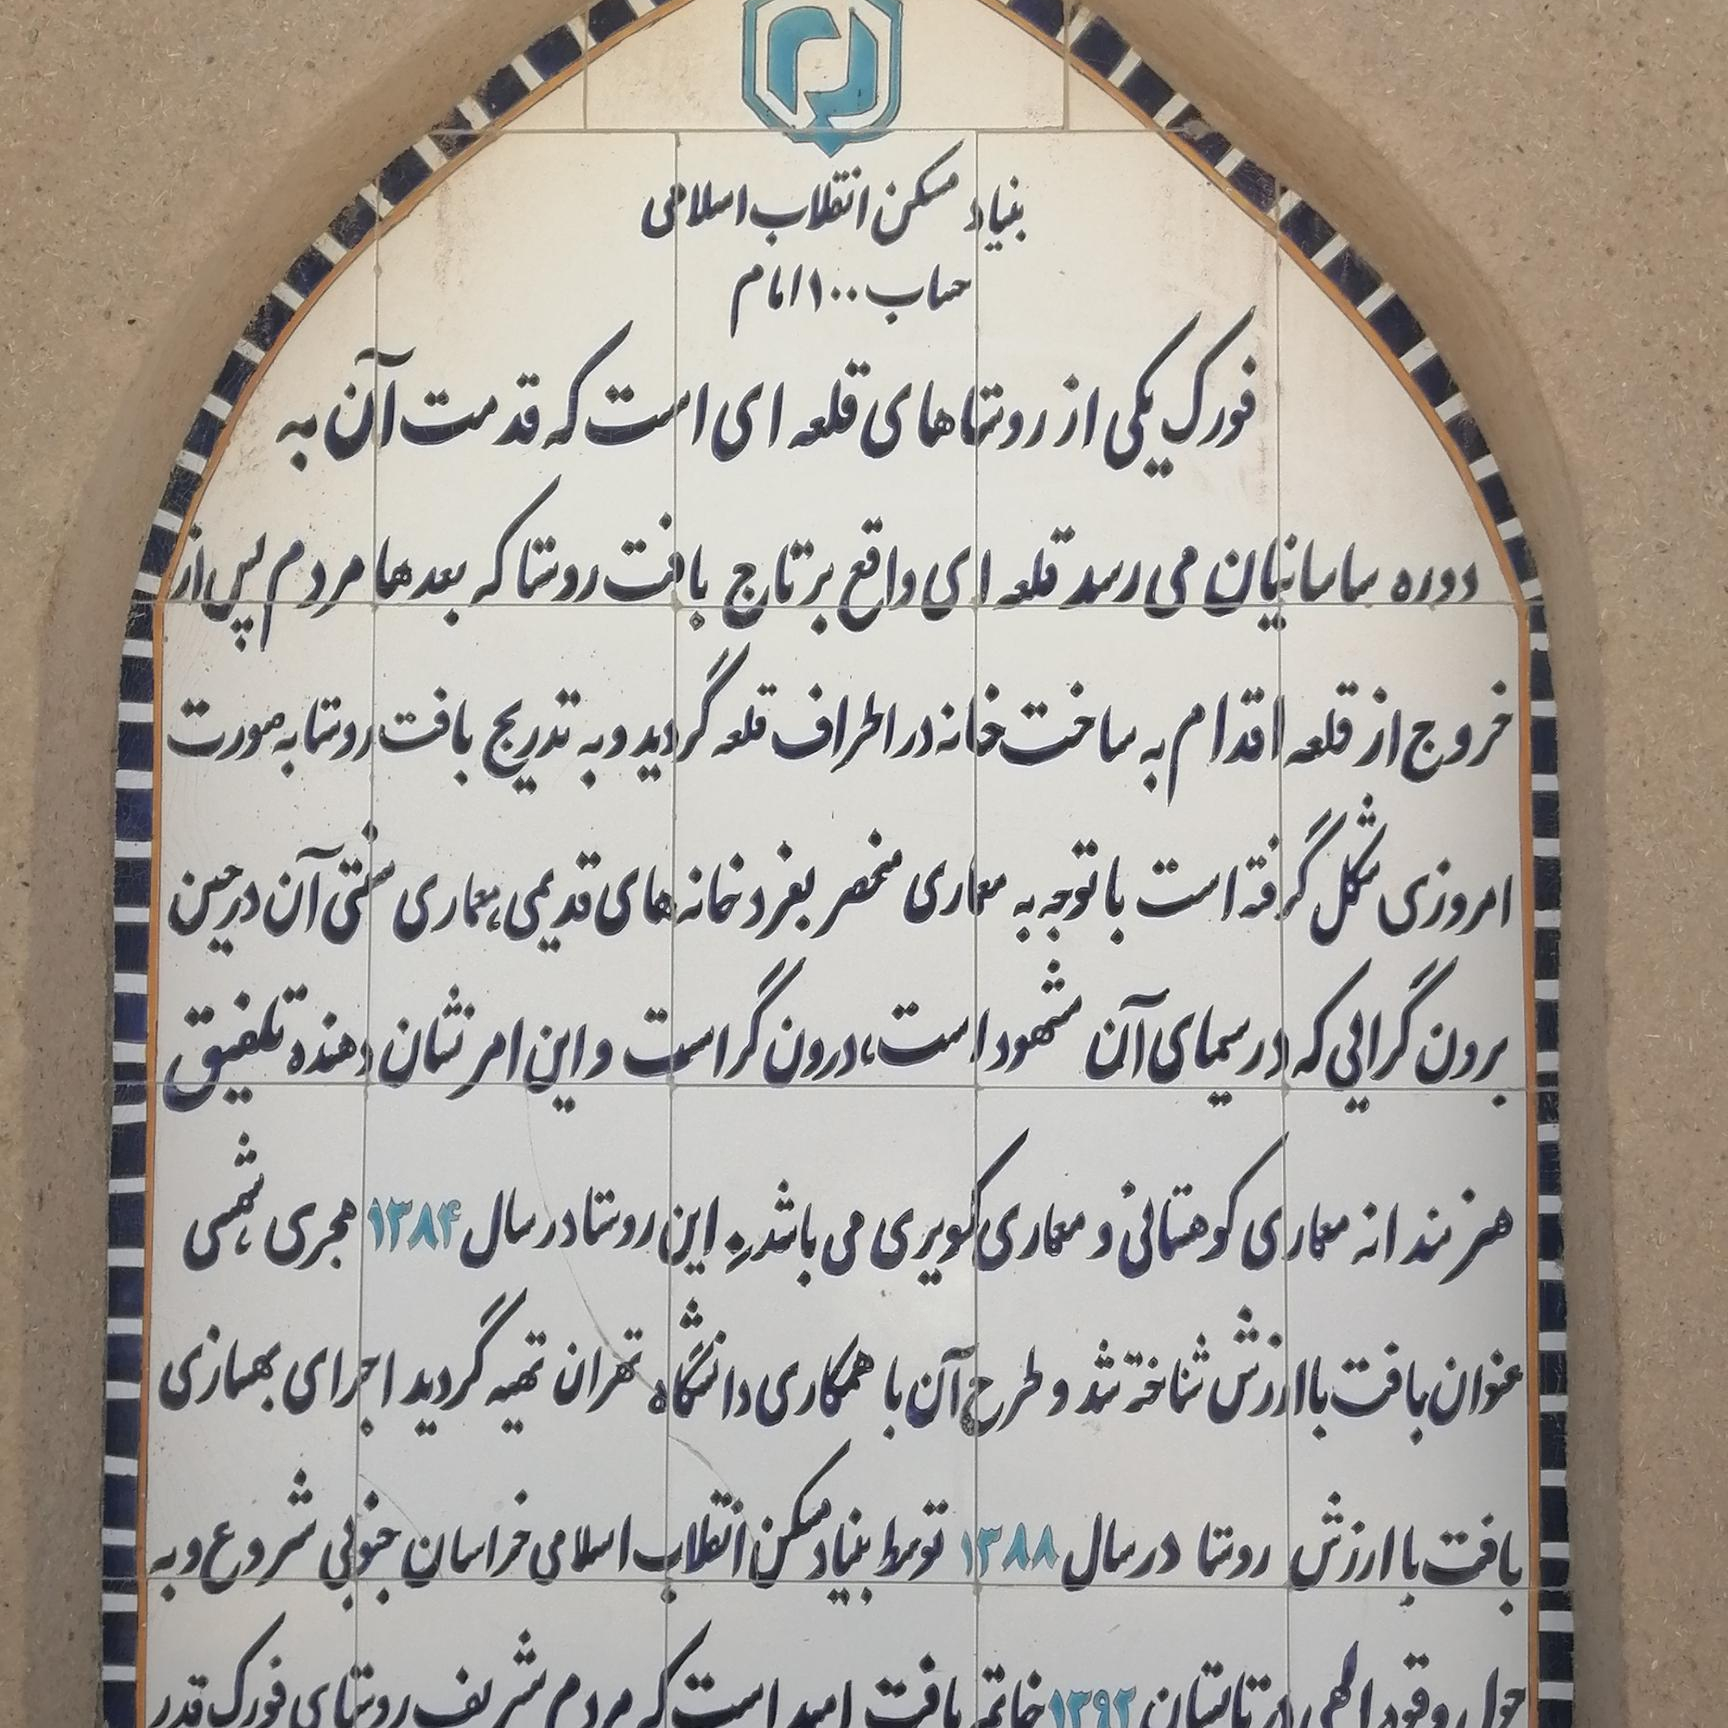 بنیاد مسکن انقلاب اسلامی
حساب ۱۰۰ امام
فورک یکی از روستاهای قلعه ای است که قدمت آن به
دوره ساسانیان می رسد قلعه ای واقع بر تاج بافت روستا که بعدها مردم پس از
خروج از قلعه اقدام به ساخت خانه در اطراف قلعه گردید و به تدریج بافت روستا به صورت
امروزی شکل گرفته است با توجه به معماری منحصر بفرد خانه های قدیمی، معماری سنتی آن در حین
برون گرایی که در سیمای آن مشهود است، درون گراست و این امر نشان دهنده تلفیق
هنرمندانه معماری کوهستانی و معماری کویری می باشد. این روستا در سال ۱۳۸۴ هجری شمسی
عنوان بافت باارزش شناخته شد و طرح آن با همکاری دانشگاه تهران تهیه گردید اجرای بهسازی
بافت با ارزش روستا در سال ۱۳۸۸ توسط بنیاد مسکن انقلاب اسلامی خراسان جنوبی شروع و به
حول و قوه الهی در تابستان ۱۳۹۲ خاتمه یافت امید است که مردم شریف روستای فورک قدر